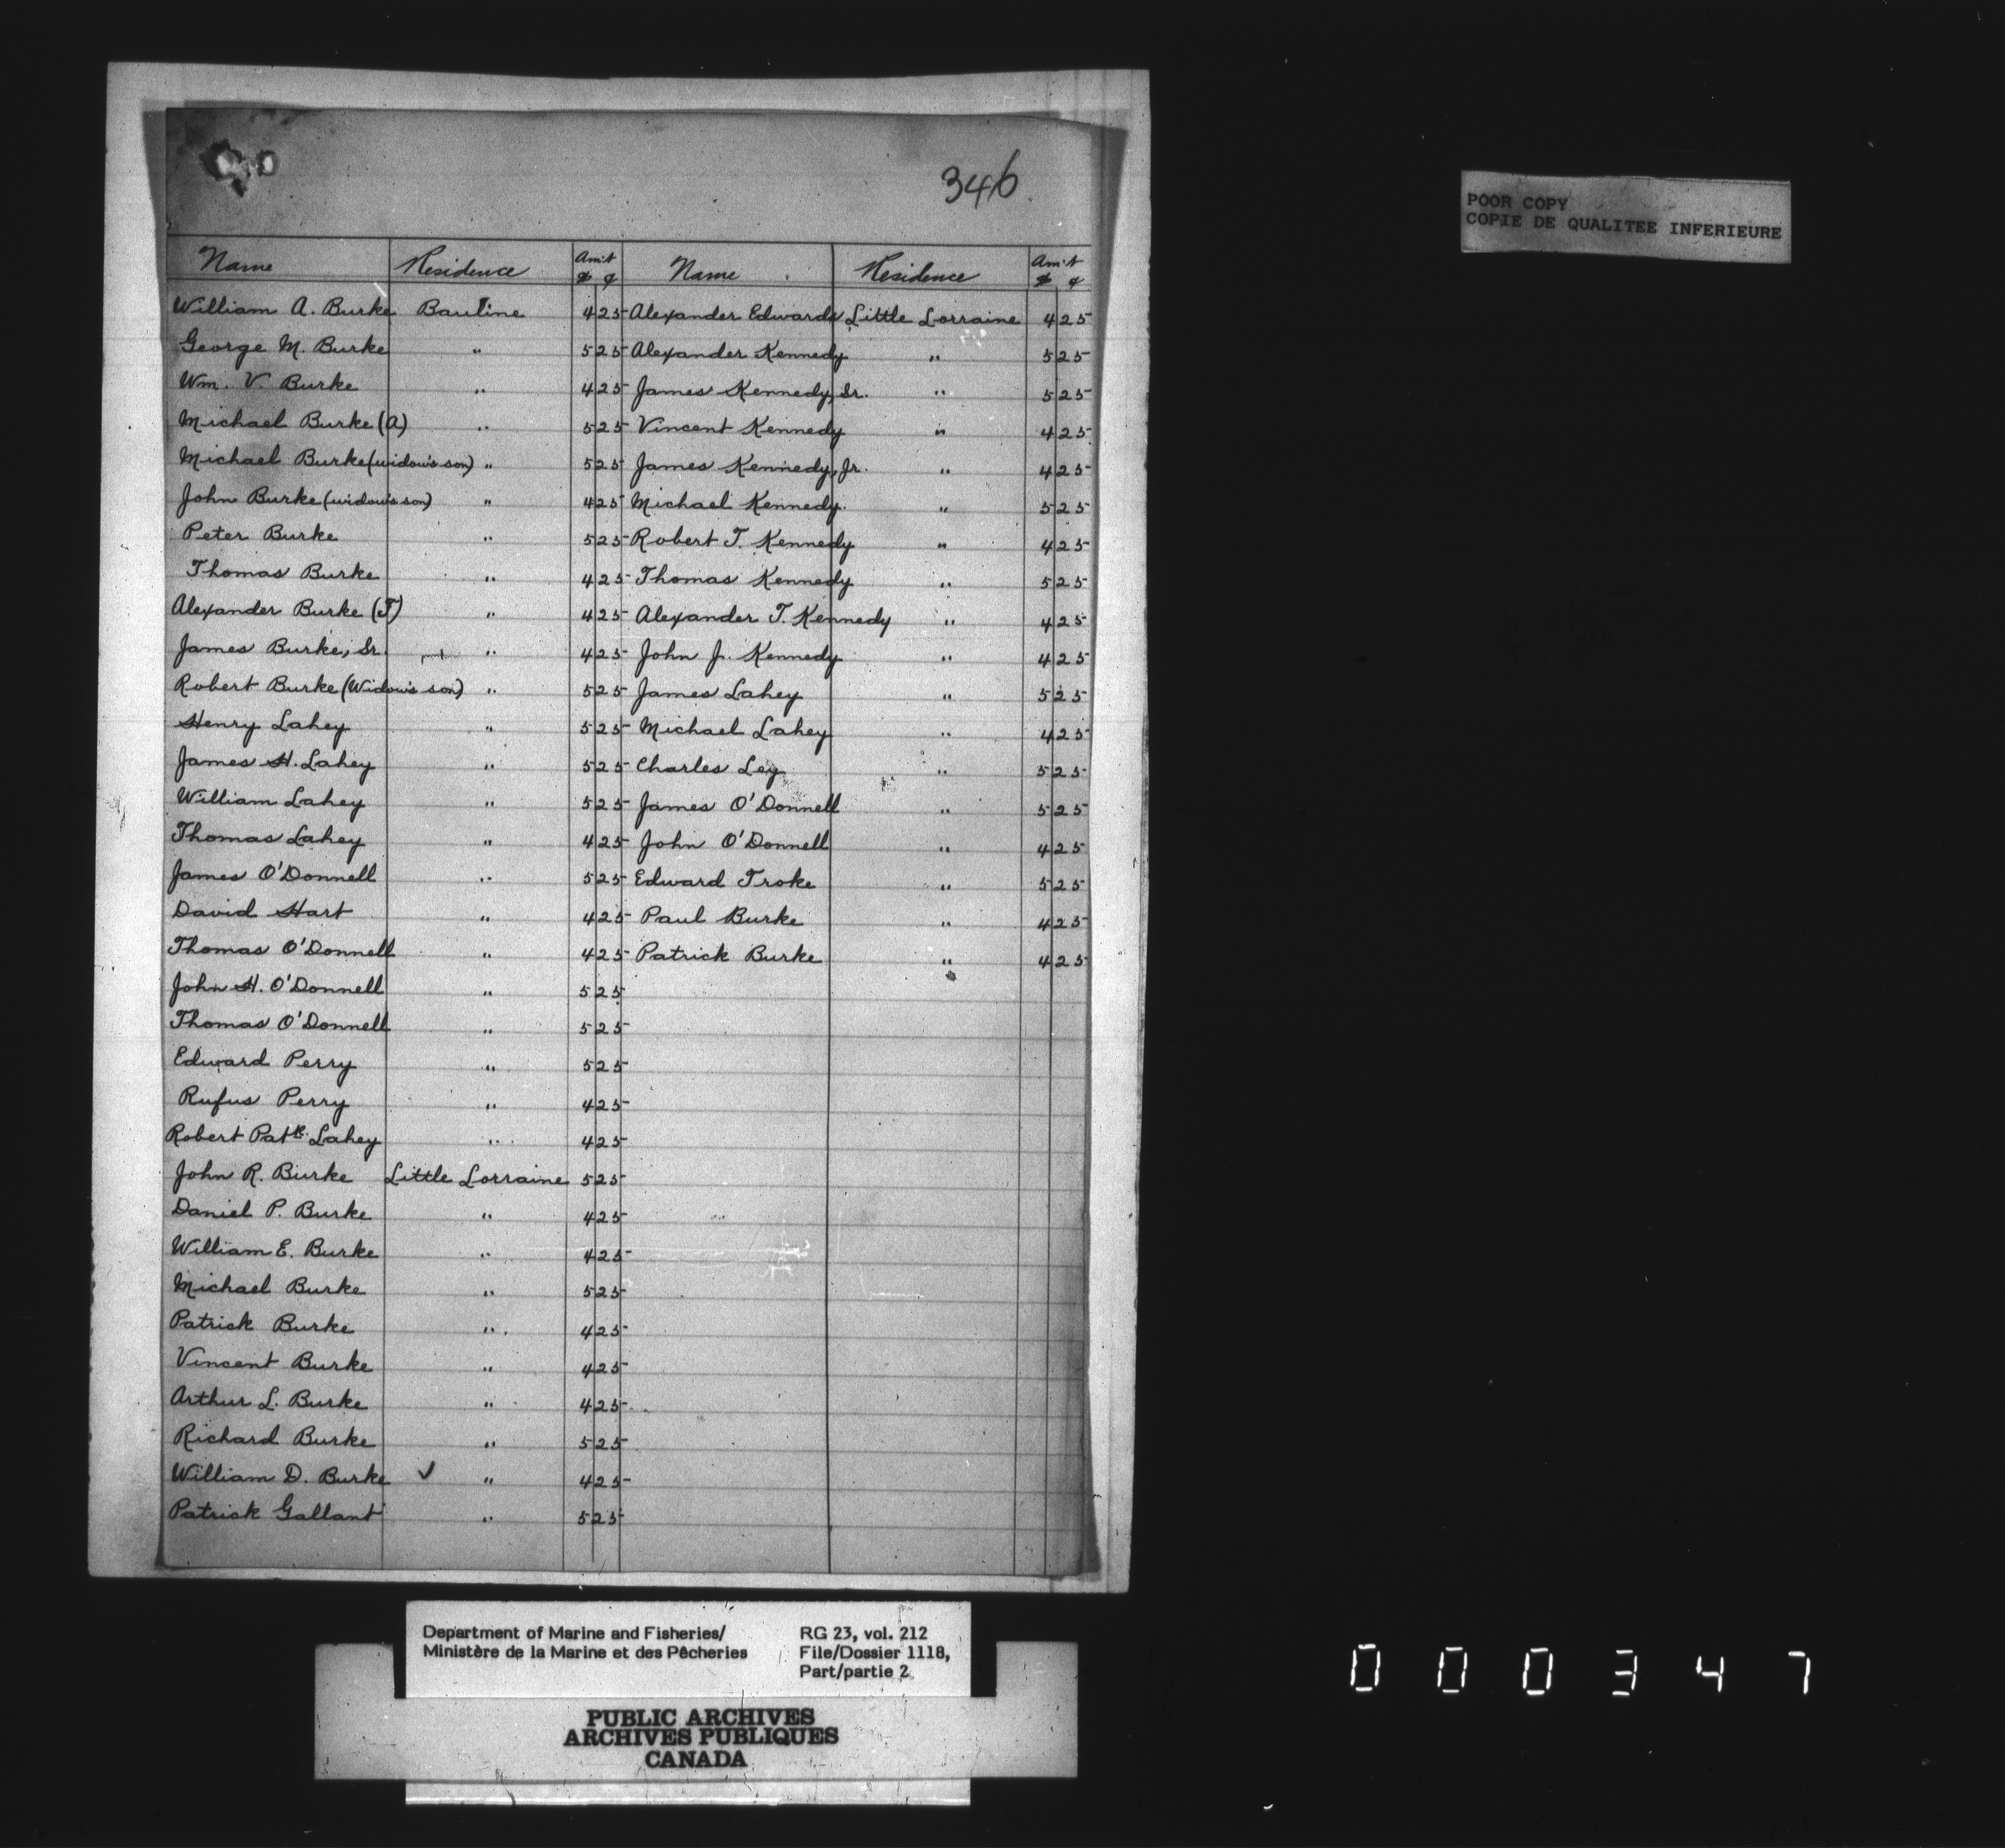 346
Name Residence Am't $ ¢ Name Residence Am't $ ¢
William A. Burke Bauline 4 25 Alexander Edwards Little Lorraine 4 25
George M. Burke " 5 25 Alexander Kennedy " 5 25
Wm. V. Burke " 4 25 James Kennedy, Sr. " 5 25
Michael Burke (A) " 5 25 Vincent Kennedy " 4 25
Michael Burke (widow's son) " 5 25 James Kennedy, Jr. " 4 25
John Burke (widow's son) " 4 25 Michael Kennedy. " 5 25
Peter Burke " 5 25 Robert T. Kennedy " 4 25
Thomas Burke " 4 25 Thomas Kennedy " 5 25
Alexander Burke (T) " 4 25 Alexander T. Kennedy " 4 25
James Burke, Sr. " 4 25 John J. Kennedy " 4 25
Robert Burke (Widow's son) " 5 25 James Lahey " 5 25
Henry Lahey " 5 25 Michael Lahey " 4 25
James H. Lahey " 5 25 Charles Ley " 5 25
William Lahey " 5 25 James O'Donnell " 5 25
Thomas Lahey " 4 25 John O'Donnell " 4 25
James O'Donnell " 5 25 Edward Troke " 5 25
David Hart " 4 25 Paul Burke " 4 25
Thomas O'Donnell " 4 25 Patrick Burke " 4 25
John H. O'Donnell " 5 25
Thomas O'Donnell " 5 25
Edward Perry " 5 25
Rufus Perry " 4 25
Robert Patk. Lahey " 4 25
John R. Burke Little Lorraine 5 25
Daniel P. Burke " 4 25
William E. Burke " 4 25
Michael Burke " 5 25
Patrick Burke " 4 25
Vincent Burke " 4 25
Arthur L. Burke " 4 25
Richard Burke " 5 25
William D. Burke ✓ " 4 25
Patrick Gallant " 5 25
POOR COPY
COPIE DE QUALITEE INFERIEURE
Department of Marine and Fisheries/ RG 23, vol. 212
Ministère de la Marine et des Pêcheries File/Dossier 1118,
Part/partie 2
PUBLIC ARCHIVES
ARCHIVES PUBLIQUES
CANADA
000347